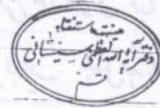 دفتر آیة الله العظمی سیستانی
قم